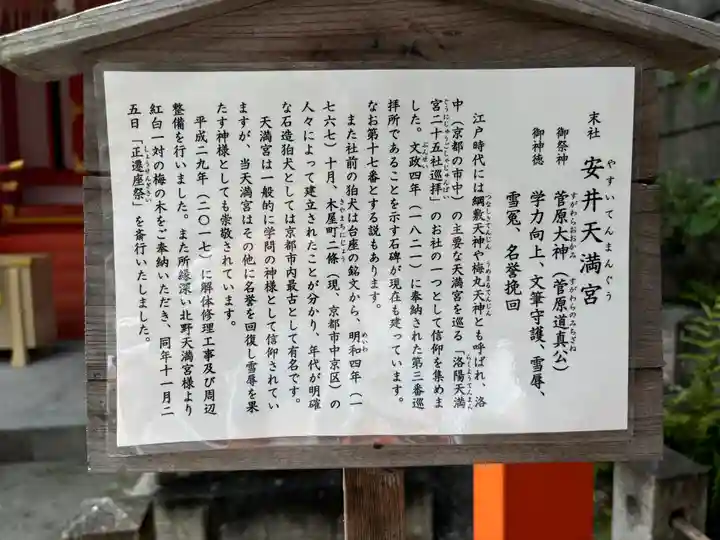 末社 安井天満宮
やすいてんまんぐう
御祭神 菅原大神（菅原道真公）
すがわらおおかみ すがわらのみちざね
御神徳 学力向上、文筆守護、雪辱、
雪冤、名誉挽回
江戸時代には綱敷天神や梅丸天神とも呼ばれ、洛
つなしきてんじん うめまるてんじん らく
中（京都の市中）の主要な天満宮を巡る「洛陽天満
らくようてんまん
宮二十五社巡拝」のお社の一つとして信仰を集めま
ぐうにじゅうごしゃじゅんぱい
した。文政四年（一八二一）に奉納された第三番巡
ぶんせい
拝所であることを示す石碑が現在も建っています。
なお第十七番とする説もあります。
また社前の狛犬は台座の銘文から、明和四年（一
めいわ
七六七）十月、木屋町二條（現、京都市中京区）の
きやまちにじょう
人々によって建立されたことが分かり、年代が明確
な石造狛犬としては京都市内最古として有名です。
天満宮は一般的に学問の神様として信仰されてい
ますが、当天満宮はその他に名誉を回復し雪辱を果
たす神様としても崇敬されています。
平成二九年（二〇一七）に解体修理工事及び周辺
整備を行いました。また所縁深い北野天満宮様より
紅白一対の梅の木をご奉納いただき、同年十一月二
五日「正遷座祭」を斎行いたしました。
しょうせんざさい